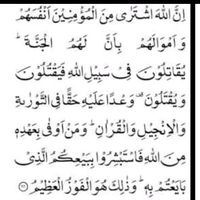 اِنَّ اللّٰهَ اشْتَرٰى مِنَ الْمُؤْمِنِيْنَ اَنْفُسَهُمْ
وَ اَمْوَالَهُمْ بِاَنَّ لَهُمُ الْجَنَّةَ ؕ
يُقَاتِلُوْنَ فِىْ سَبِيْلِ اللّٰهِ فَيَقْتُلُوْنَ
وَ يُقْتَلُوْنَ وَعْدًا عَلَيْهِ حَقًّا فِى التَّوْرٰىةِ
وَ الْاِنْجِيْلِ وَ الْقُرْاٰنِ ؕ وَ مَنْ اَوْفٰى بِعَهْدِهٖ
مِنَ اللّٰهِ فَاسْتَبْشِرُوْا بِبَيْعِكُمُ الَّذِىْ
بَايَعْتُمْ بِهٖ ؕ وَ ذٰلِكَ هُوَ الْفَوْزُ الْعَظِيْمُ